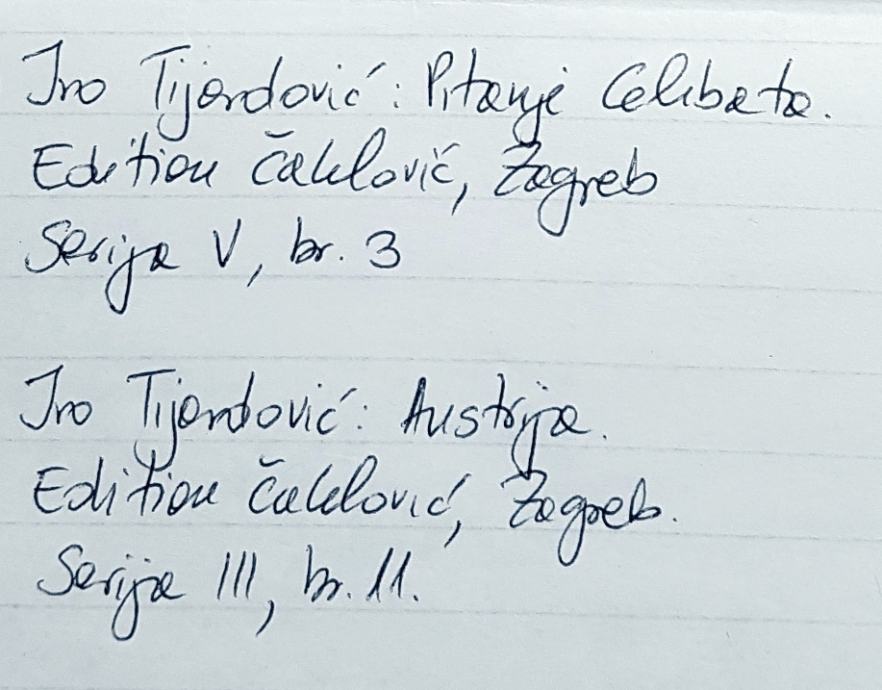 Ivo Tijardović: Pitanje Celibata.
Edition Čaklović, Zagreb
Serija V, br. 3
Ivo Tijardović: Austrija.
Edition Čaklović, Zagreb.
Serija III, br. 11.